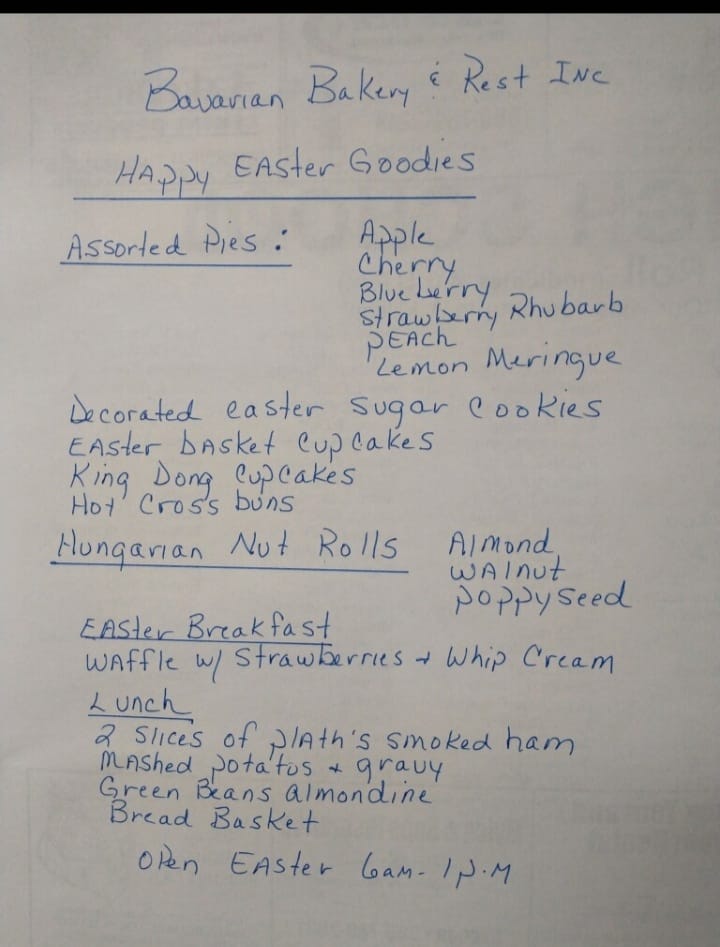 Bavarian Bakery & Rest Inc
Happy Easter Goodies
Assorted Pies : Apple
Cherry
Blueberry
Strawberry Rhubarb
Peach
Lemon Meringue
Decorated easter sugar cookies
Easter basket cupcakes
King Dong cupcakes
Hot Cross buns
Hungarian Nut Rolls Almond
Walnut
poppyseed
Easter Breakfast
Waffle w/ Strawberries + Whip Cream
Lunch
2 slices of plath's smoked ham
Mashed potatos + gravy
Green Beans almondine
Bread Basket
Open Easter 6am - 1 p.m